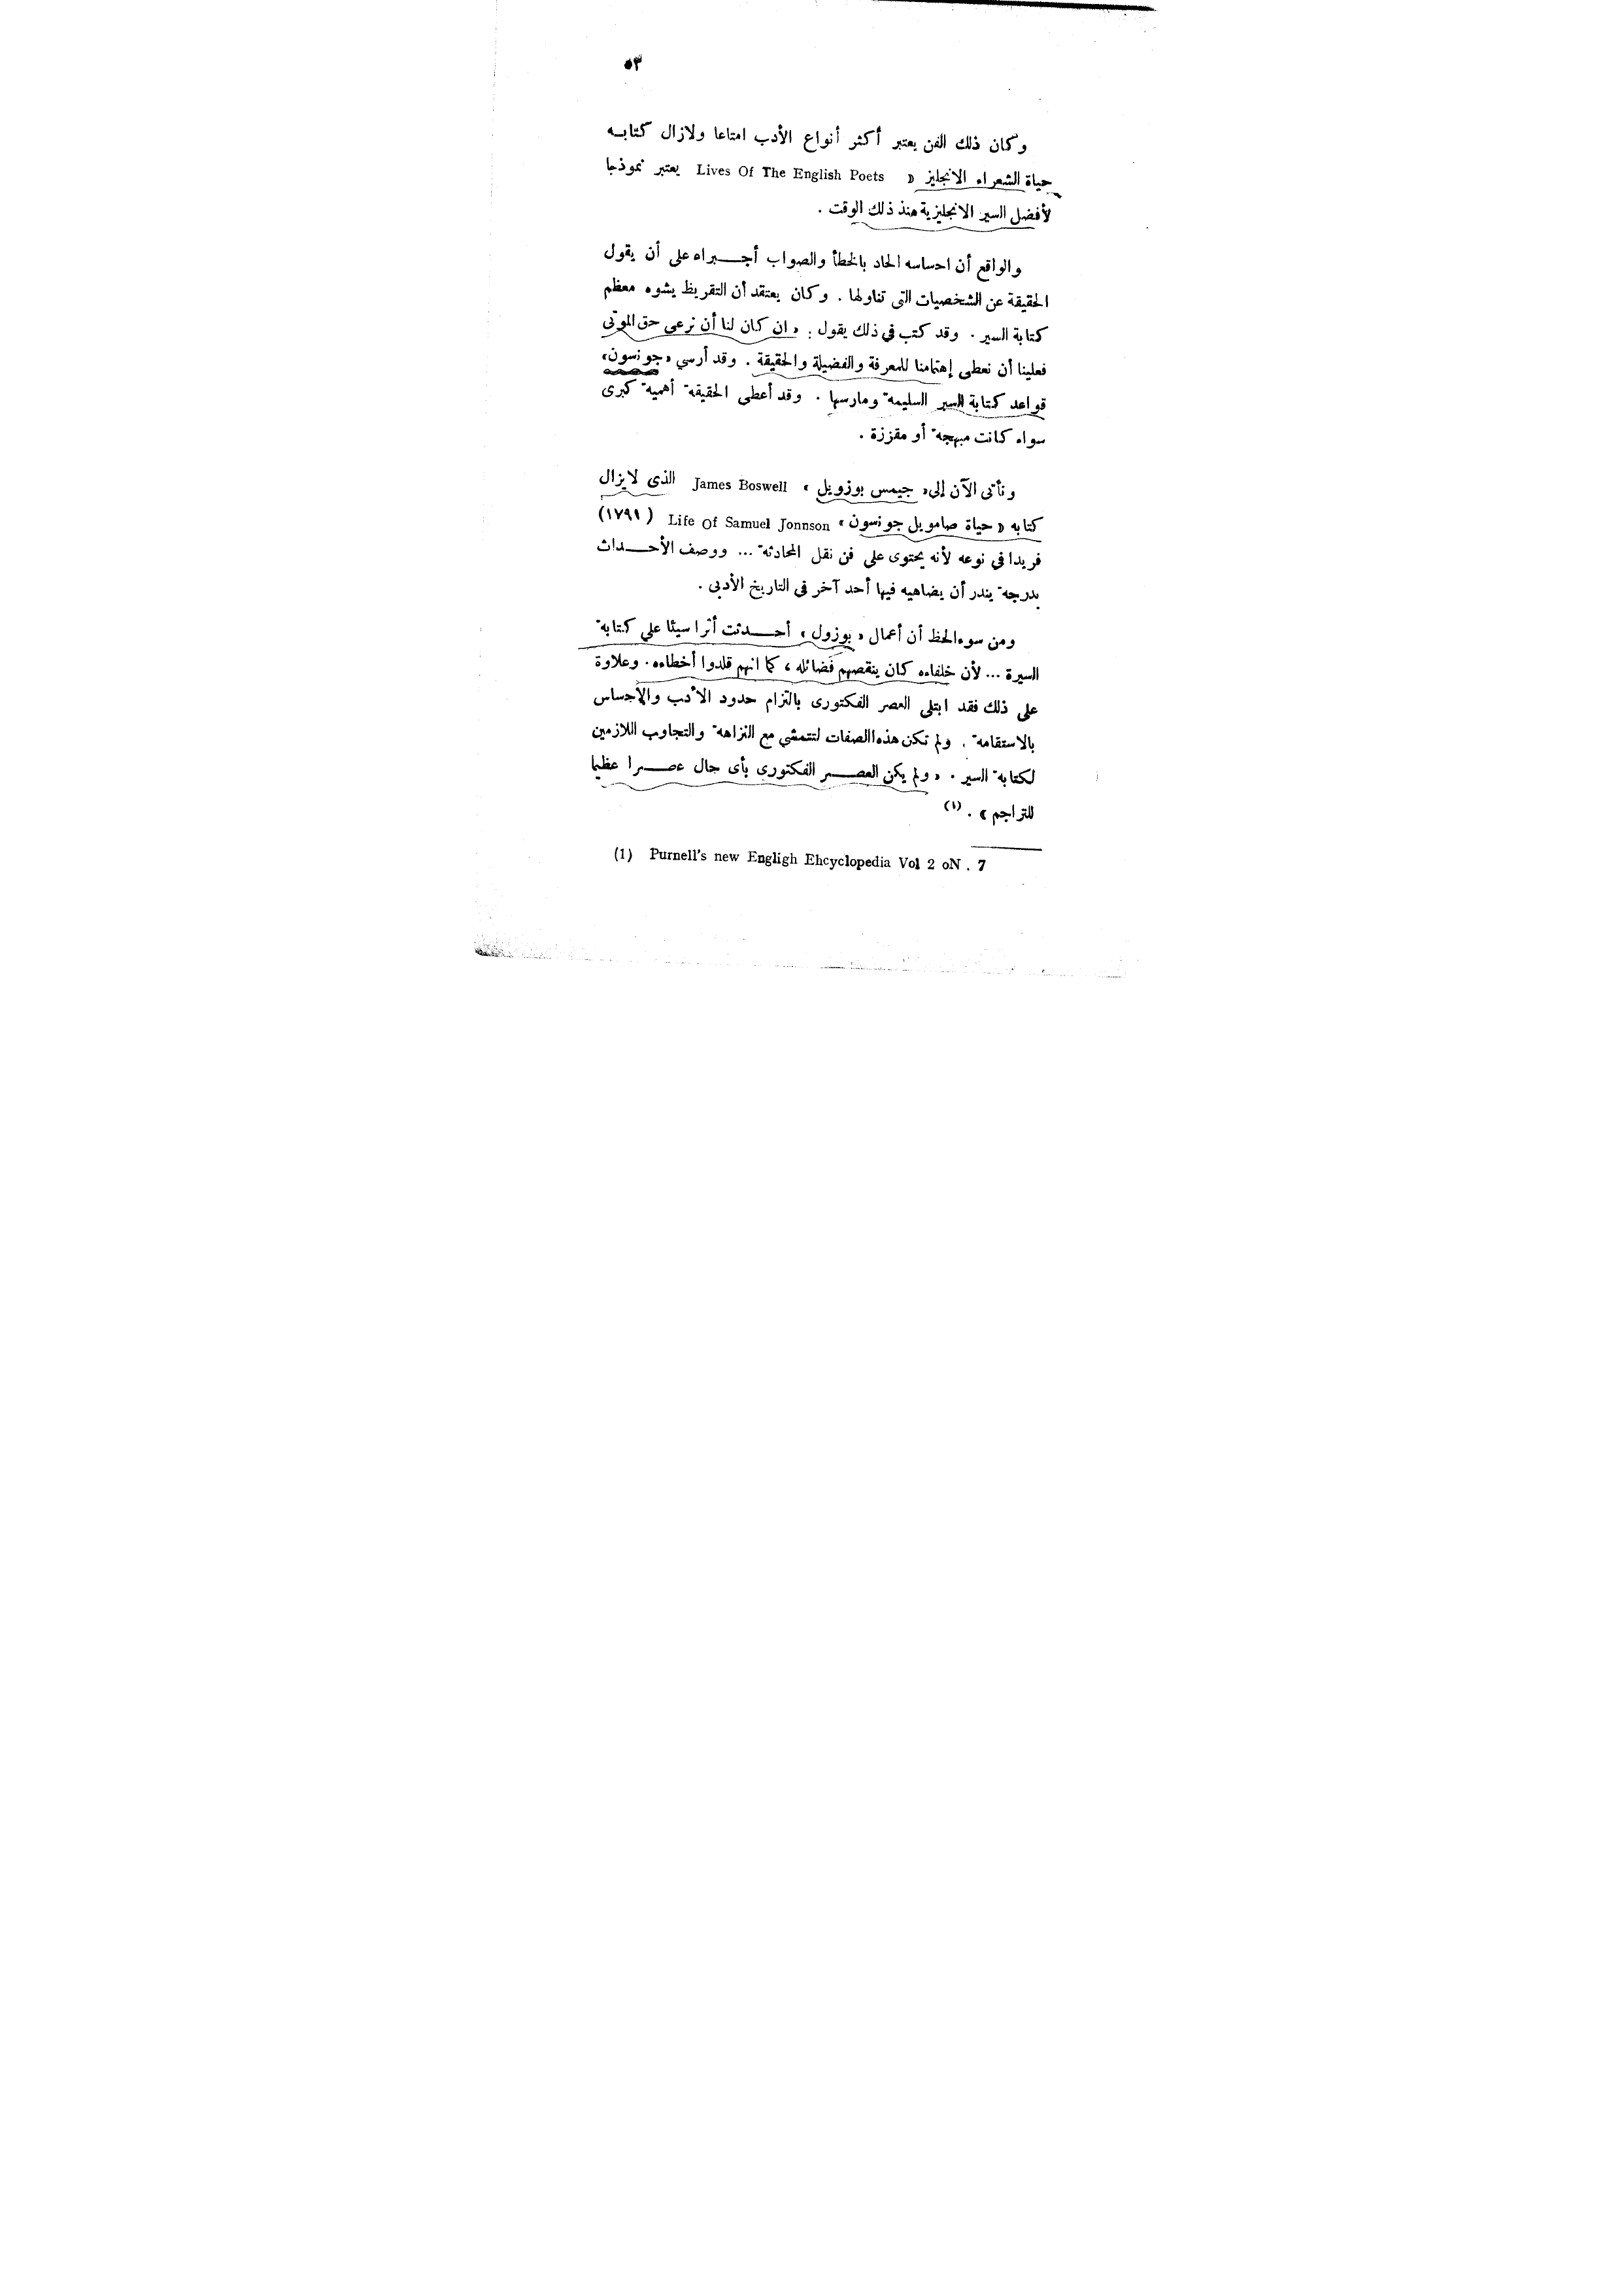 ٥٣
وكان ذلك الفن يعتبر أكثر أنواع الأدب امتاعا ولازال كتابه
حياة الشعراء الانجليز « Lives Of The English Poets يعتبر نموذجا
لأفضل السير الانجليزية منذ ذلك الوقت .
والواقع أن احساسه الحاد بالخطأ والصواب أجبراه على أن يقول
الحقيقة عن الشخصيات التى تناولها . وكان يعتقد أن التقريظ يشوه معظم
كتابة السير . وقد كتب في ذلك يقول : « ان كان لنا أن نرعى حق الموتى
فعلينا أن نعطى إهتمامنا للمعرفة والفضيلة والحقيقة . وقد أرسى « جونسون »
قواعد كتابة السير السليمة ومارسها . وقد أعطى الحقيقة أهمية كبرى
سواء كانت مبهجة أو مقززة .
ونأتى الآن إلى « جيمس بوزويل » James Boswell الذى لايزال
كتابه « حياة صامويل جونسون » Life Of Samuel Jonnson ( ١٧٩١)
فريدا في نوعه لأنه يحتوى على فن نقل المحادثة ... ووصف الأحداث
بدرجة يندر أن يضاهيه فيها أحد آخر فى التاريخ الأدبى .
ومن سوء الحظ أن أعمال « بوزول » أحدثت أثرا سيئا على كتابة
السيرة ... لأن خلفاءه كان ينقصهم فضائله ، كما انهم قلدوا أخطاءه . وعلاوة
على ذلك فقد ابتلى العصر الفكتورى بالتزام حدود الأدب والإحساس
بالاستقامة . ولم تكن هذه الصفات لتتمشى مع النزاهة والتجاوب اللازمين
لكتابة السير . « ولم يكن العصر الفكتورى بأى حال عصرا عظيما
للتراجم » . (١)
(1) Purnell's new Engligh Ehcyclopedia Vol 2 oN . 7